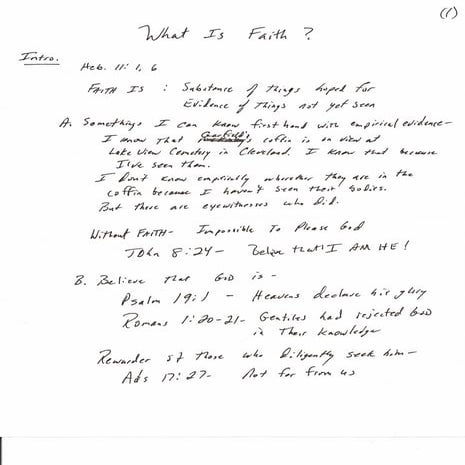 (1)
What Is Faith?
Intro.
Heb. 11:1, 6
FAITH IS : Substance of things hoped for
Evidence of Things not yet seen
A. Somethings I can know first hand with empirical evidence-
I know That Garfield's coffin is on view at
Lake View Cemetery in Cleveland. I know that because
I've seen them.
I don't know empirically whether they are in the
coffin because I haven't seen their bodies.
But there are eyewitnesses who did.
Without FAITH- Impossible To Please God
John 8:24- Believe that I AM HE!
B. Believe That GOD is -
Psalm 19:1 - Heavens declare his glory
Romans 1:20-21- Gentiles had rejected GOD
in Their Knowledge
Rewarder of those who diligently seek him-
Acts 17:27- Not far from us